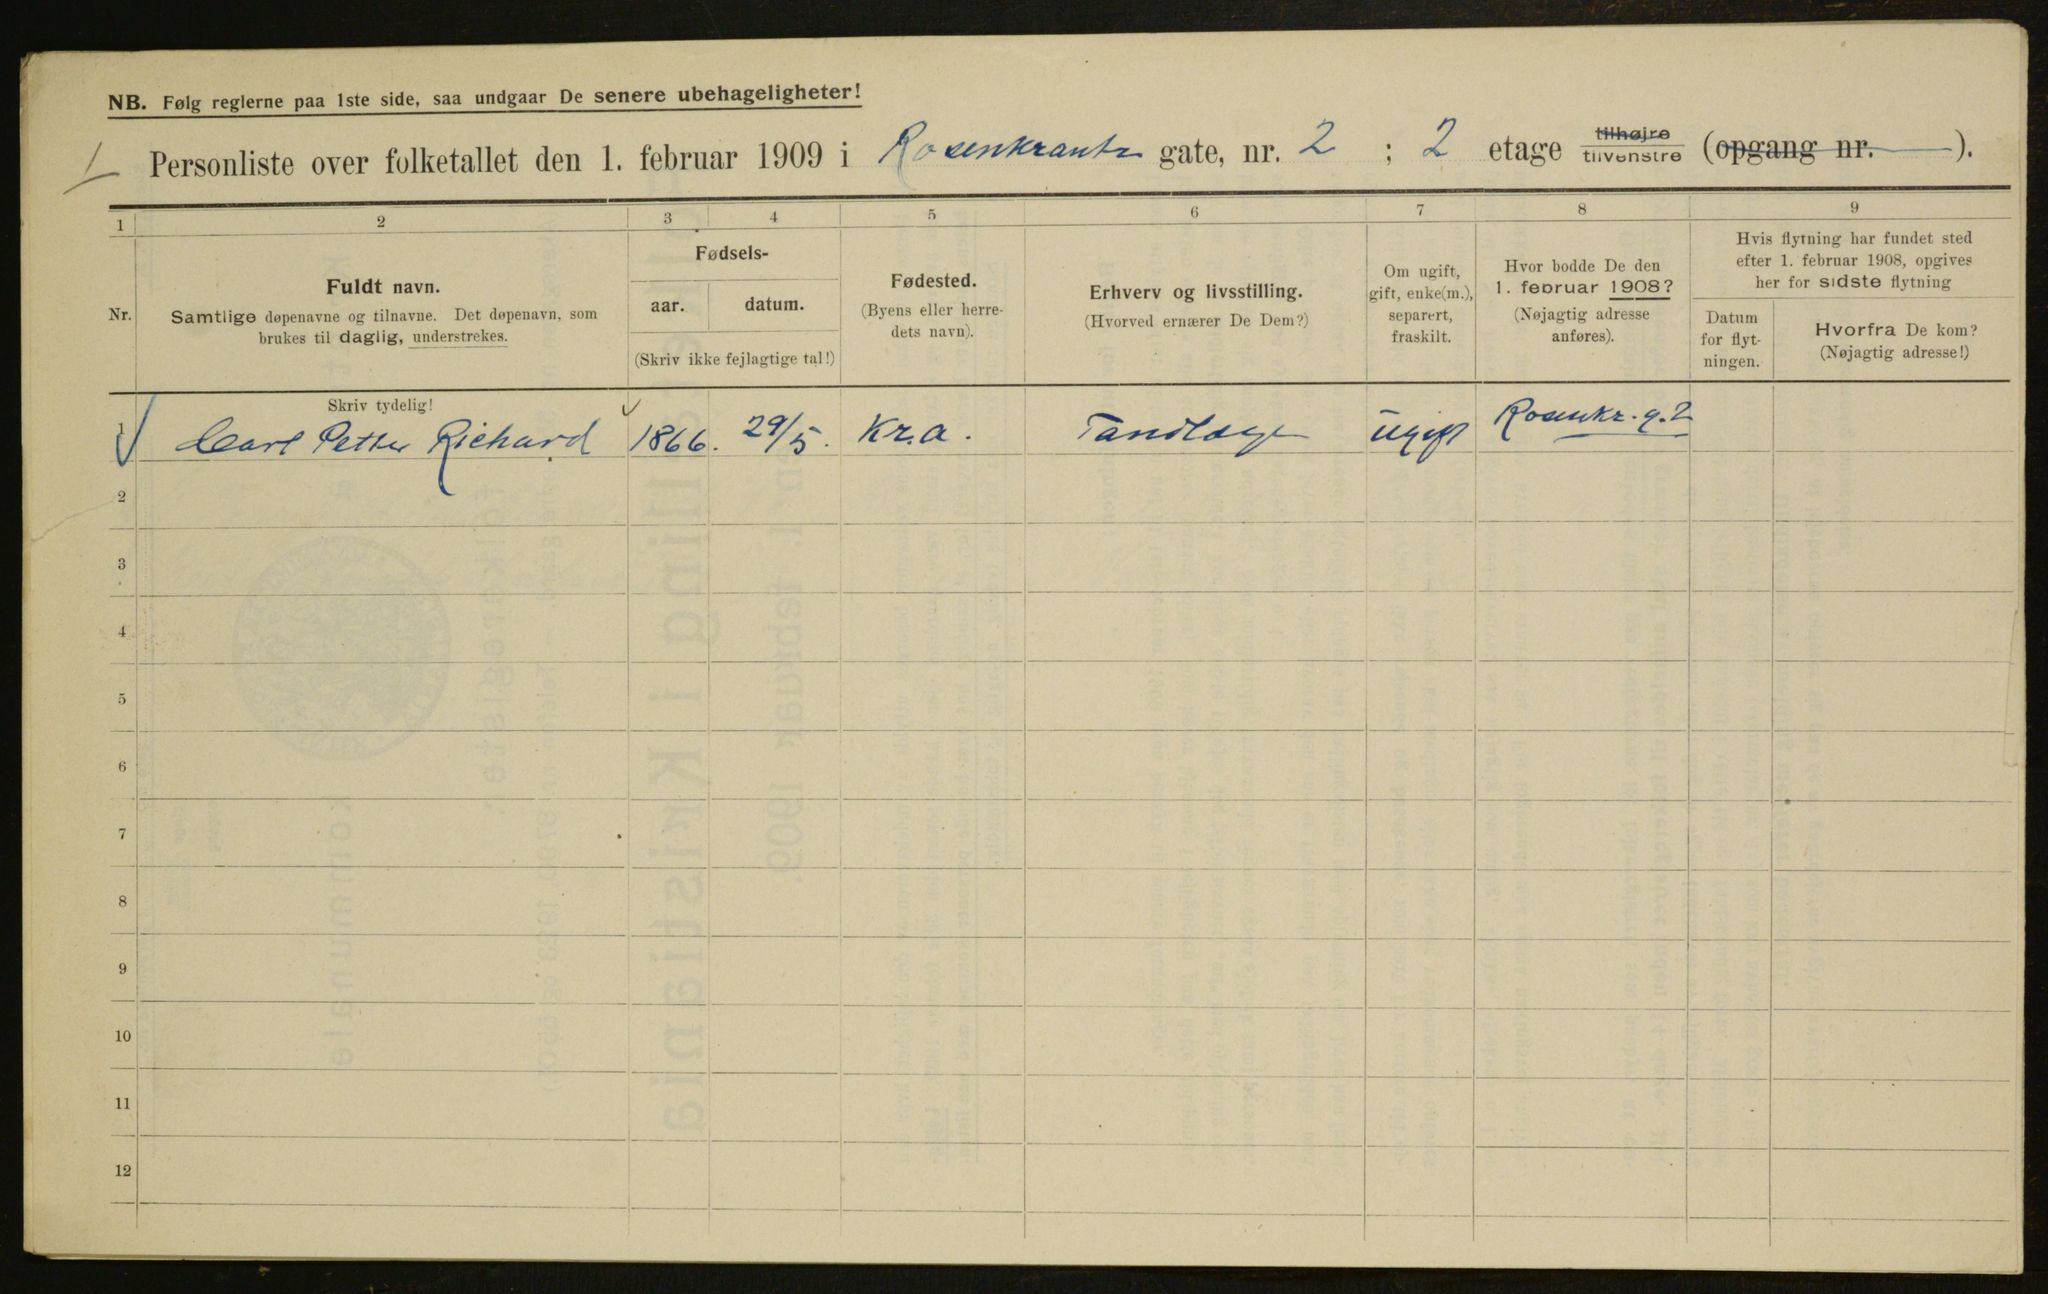 NB. Følg reglerne paa 1ste side, saa undgaar De senere ubehageligheter!
1 Personliste over folketallet den 1. februar 1909 i Rosenkrantz gate, nr. 2 ; 2 etage tilhøjre tilvenstre (opgang nr. ).
1 2 3 4 5 6 7 8 9
Nr.
Fuldt navn.
Samtlige døpenavne og tilnavne. Det døpenavn, som
brukes til daglig, understrekes.
Fødsels-
aar. datum.
(Skriv ikke fejlagtige tal!)
Fødested.
(Byens eller herre-
dets navn).
Erhverv og livsstilling.
(Hvorved ernærer De Dem?)
Om ugift,
gift, enke(m.),
separert,
fraskilt.
Hvor bodde De den
1. februar 1908?
(Nøjagtig adresse
anføres).
Hvis flytning har fundet sted
efter 1. februar 1908, opgives
her for sidste flytning
Datum
for flyt-
ningen.
Hvorfra De kom?
(Nøjagtig adresse!)
Skriv tydelig!
1 Carl Petter Richard 1866. 29/5. Kr.a. Tandlæge Ugift Rosenkr. g. 2
2
3
4
5
6
7
8
9
10
11
12